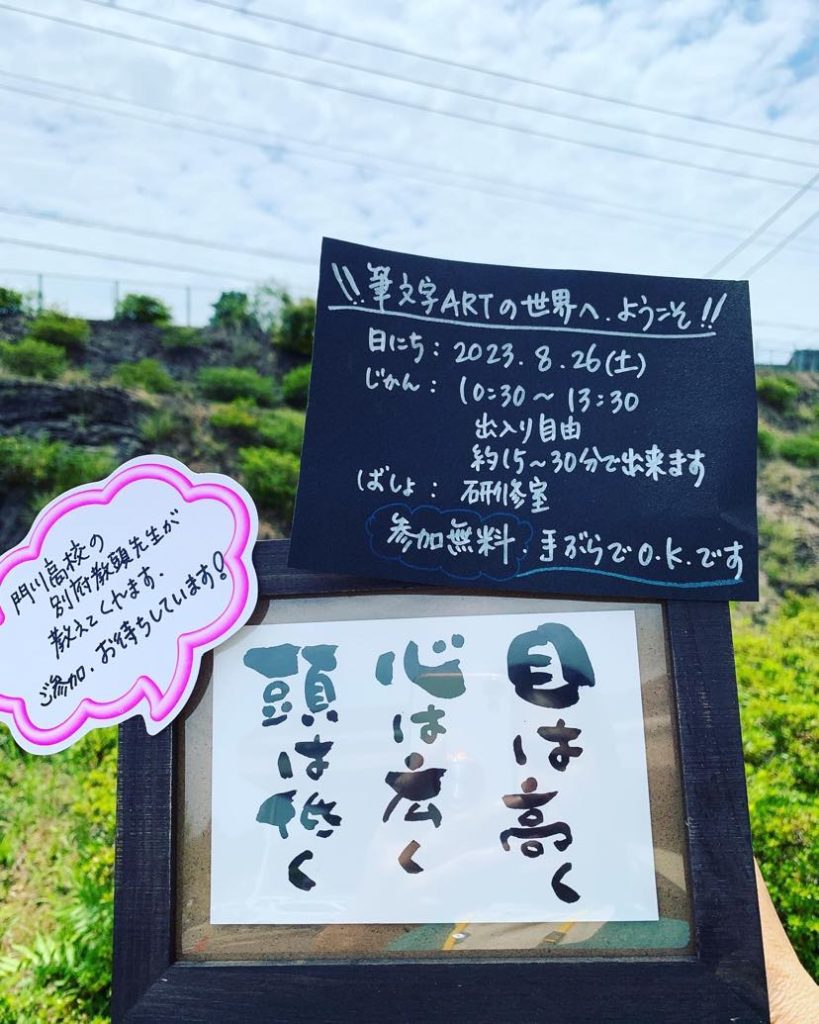 \\ 筆文字ARTの世界へ.ようこそ!!
日にち：2023.8.26(土)
じかん：10:30〜13:30
出入り自由
約15〜30分で出来ます
ばしょ：研修室
参加無料.手ぶらでO.K.です
門川高校の
別府教頭先生が
教えてくれます.
ご参加.お待ちしています!
目は高く
心は広く
頭は低く